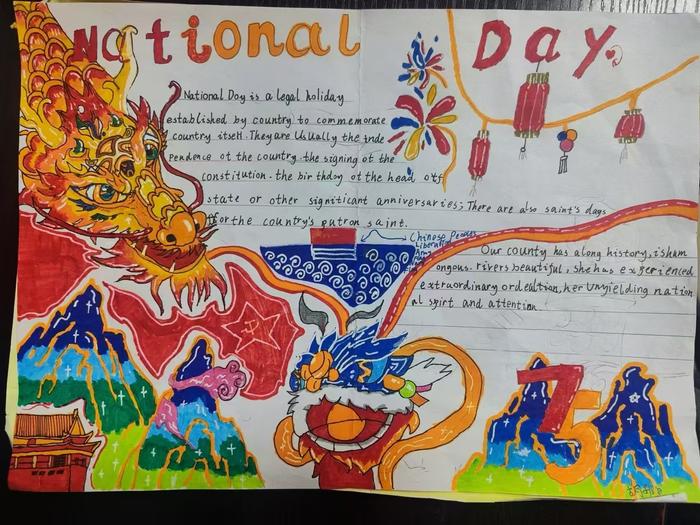 National Day
National Day is a legal holiday
established by country to commemorate
country itself. They are Usually the inde
pendence ot the country. the signing ot the
constitution. the birthday ot the head off
state or other significant anniversaries; There are also saint's days
for the country's patron saint.
Chinese People's
Liberation
Our county has along history, isham
ongous. rivers beautiful, she has experienced
extraordinary ordealtion, her Unyielding nation
al spirt and attention.
75